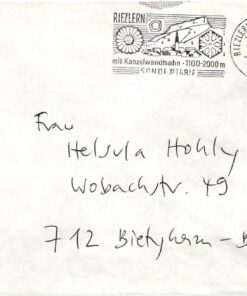 RIEZLERN
mit Kanzelwandbahn · 1100-2000 m
RIEZLERN
Frau
Helsula Hohly
Wobachstr. 49
712 Bietigheim - B